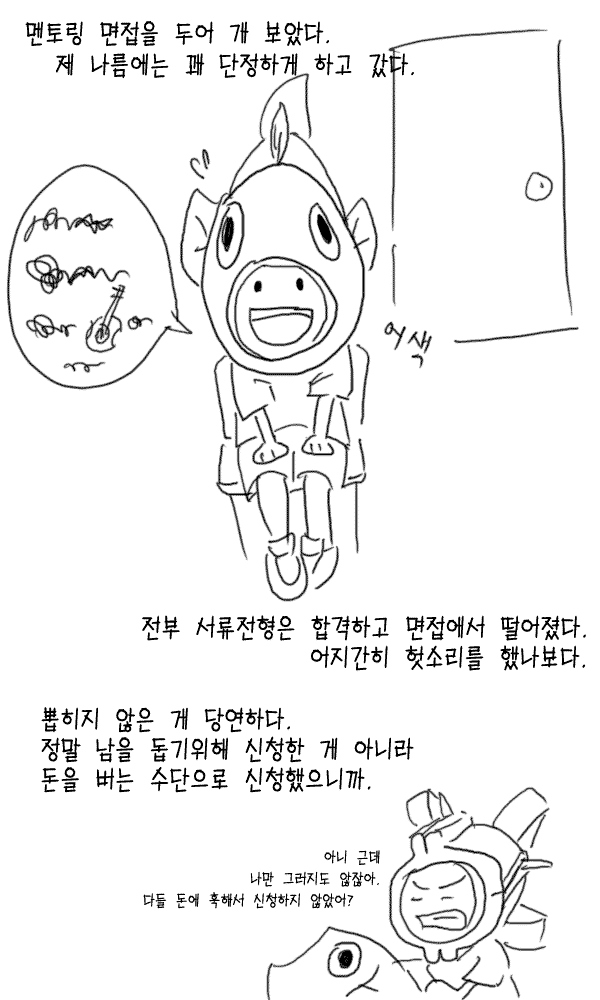 멘토링 면접을 두어 개 보았다.
제 나름에는 꽤 단정하게 하고 갔다.
어색
전부 서류전형은 합격하고 면접에서 떨어졌다.
어지간히 헛소리를 했나보다.
뽑히지 않은 게 당연하다.
정말 남을 돕기위해 신청한 게 아니라
돈을 버는 수단으로 신청했으니까.
아니 근데
나만 그러지도 않잖아.
다들 돈에 혹해서 신청하지 않았어?